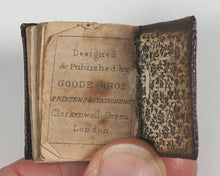 Designed
& Published by
GOODE BROS
PRINTERS & STATIONERS
Clerkenwell Green
London